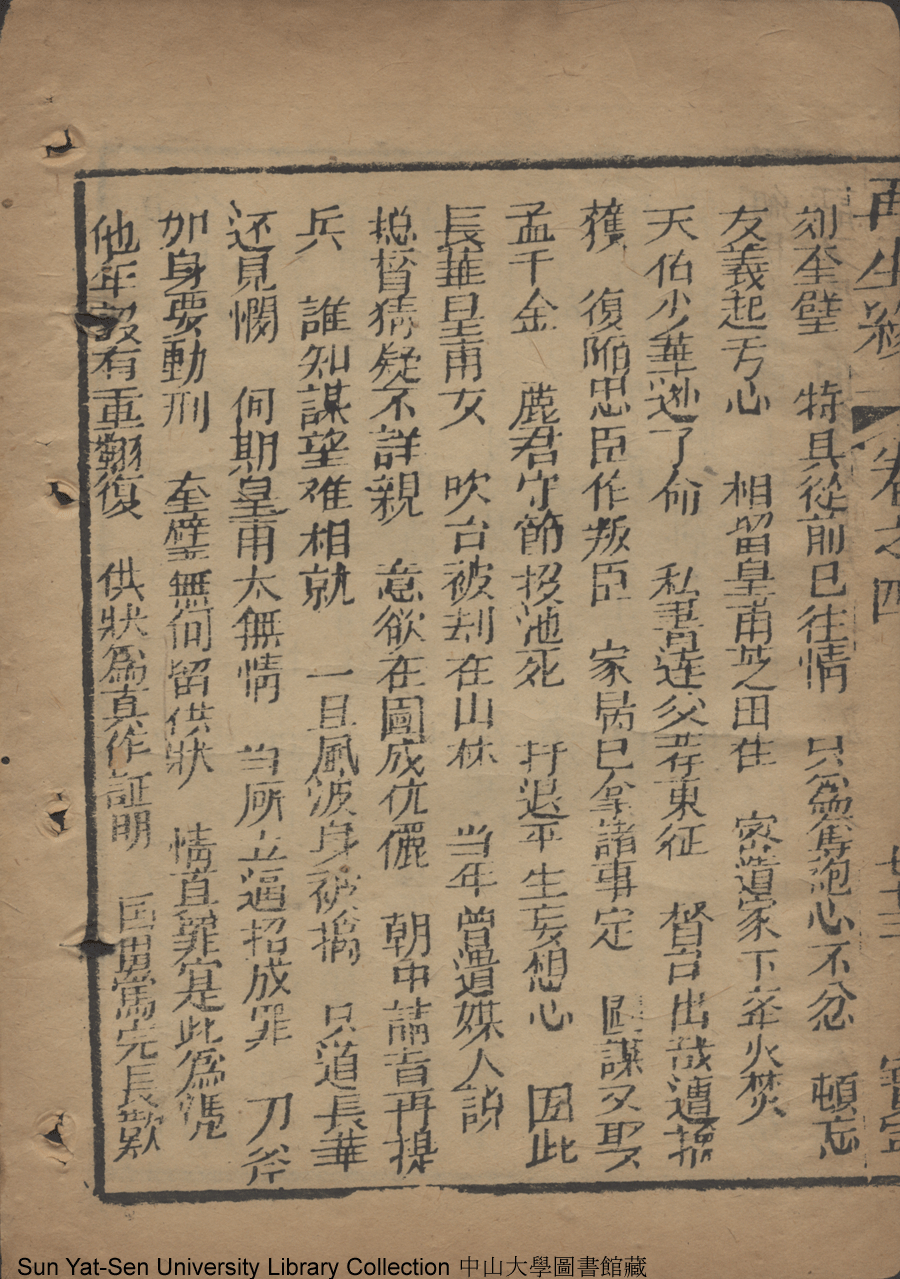 再生緣 卷之四 七十三 寶寧
刘奎璧 特具從前已往情 只為宫袍心不忿 頓忘
友義起亏心 相留皇甫芝田住 密遣家下牵火焚
天佑少華逃了命 私書連父荐東征 督台出战遭擒
獲 復陷忠臣作叛臣 家属已拿諸事定 圖謀又娶
孟千金 麗君守節投池死 奸退平生妄想心 因此
長華皇甫女 吹台被刦在山林 当年曾遣媒人説
捴督猜疑不詳親 意欲在圖成伉儷 朝中請旨再提
兵 誰知謀望难相就 一旦風波身被擒 只道長華
还見憫 何期皇甫太無情 当所立逼招成罪 刀斧
加身要動刑 奎璧無何留供狀 情真罪寔此為凭
他年設有重翻復 供狀為真作証明 国舅寫完長歎
Sun Yat-Sen University Library Collection 中山大學圖書館藏